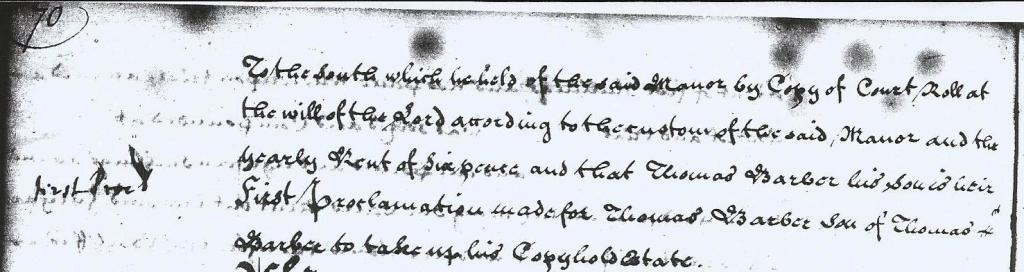 70
To the South which he held of the said Manor by Copy of Court Roll at
the will of the Lord according to the custom of the said Manor and the
yearly Rent of Sixpence and that Thomas Barber his Son is heir
first Proc
First Proclamation made for Thomas Barber Son of Thomas
Barber to take up his Copyhold Estate.